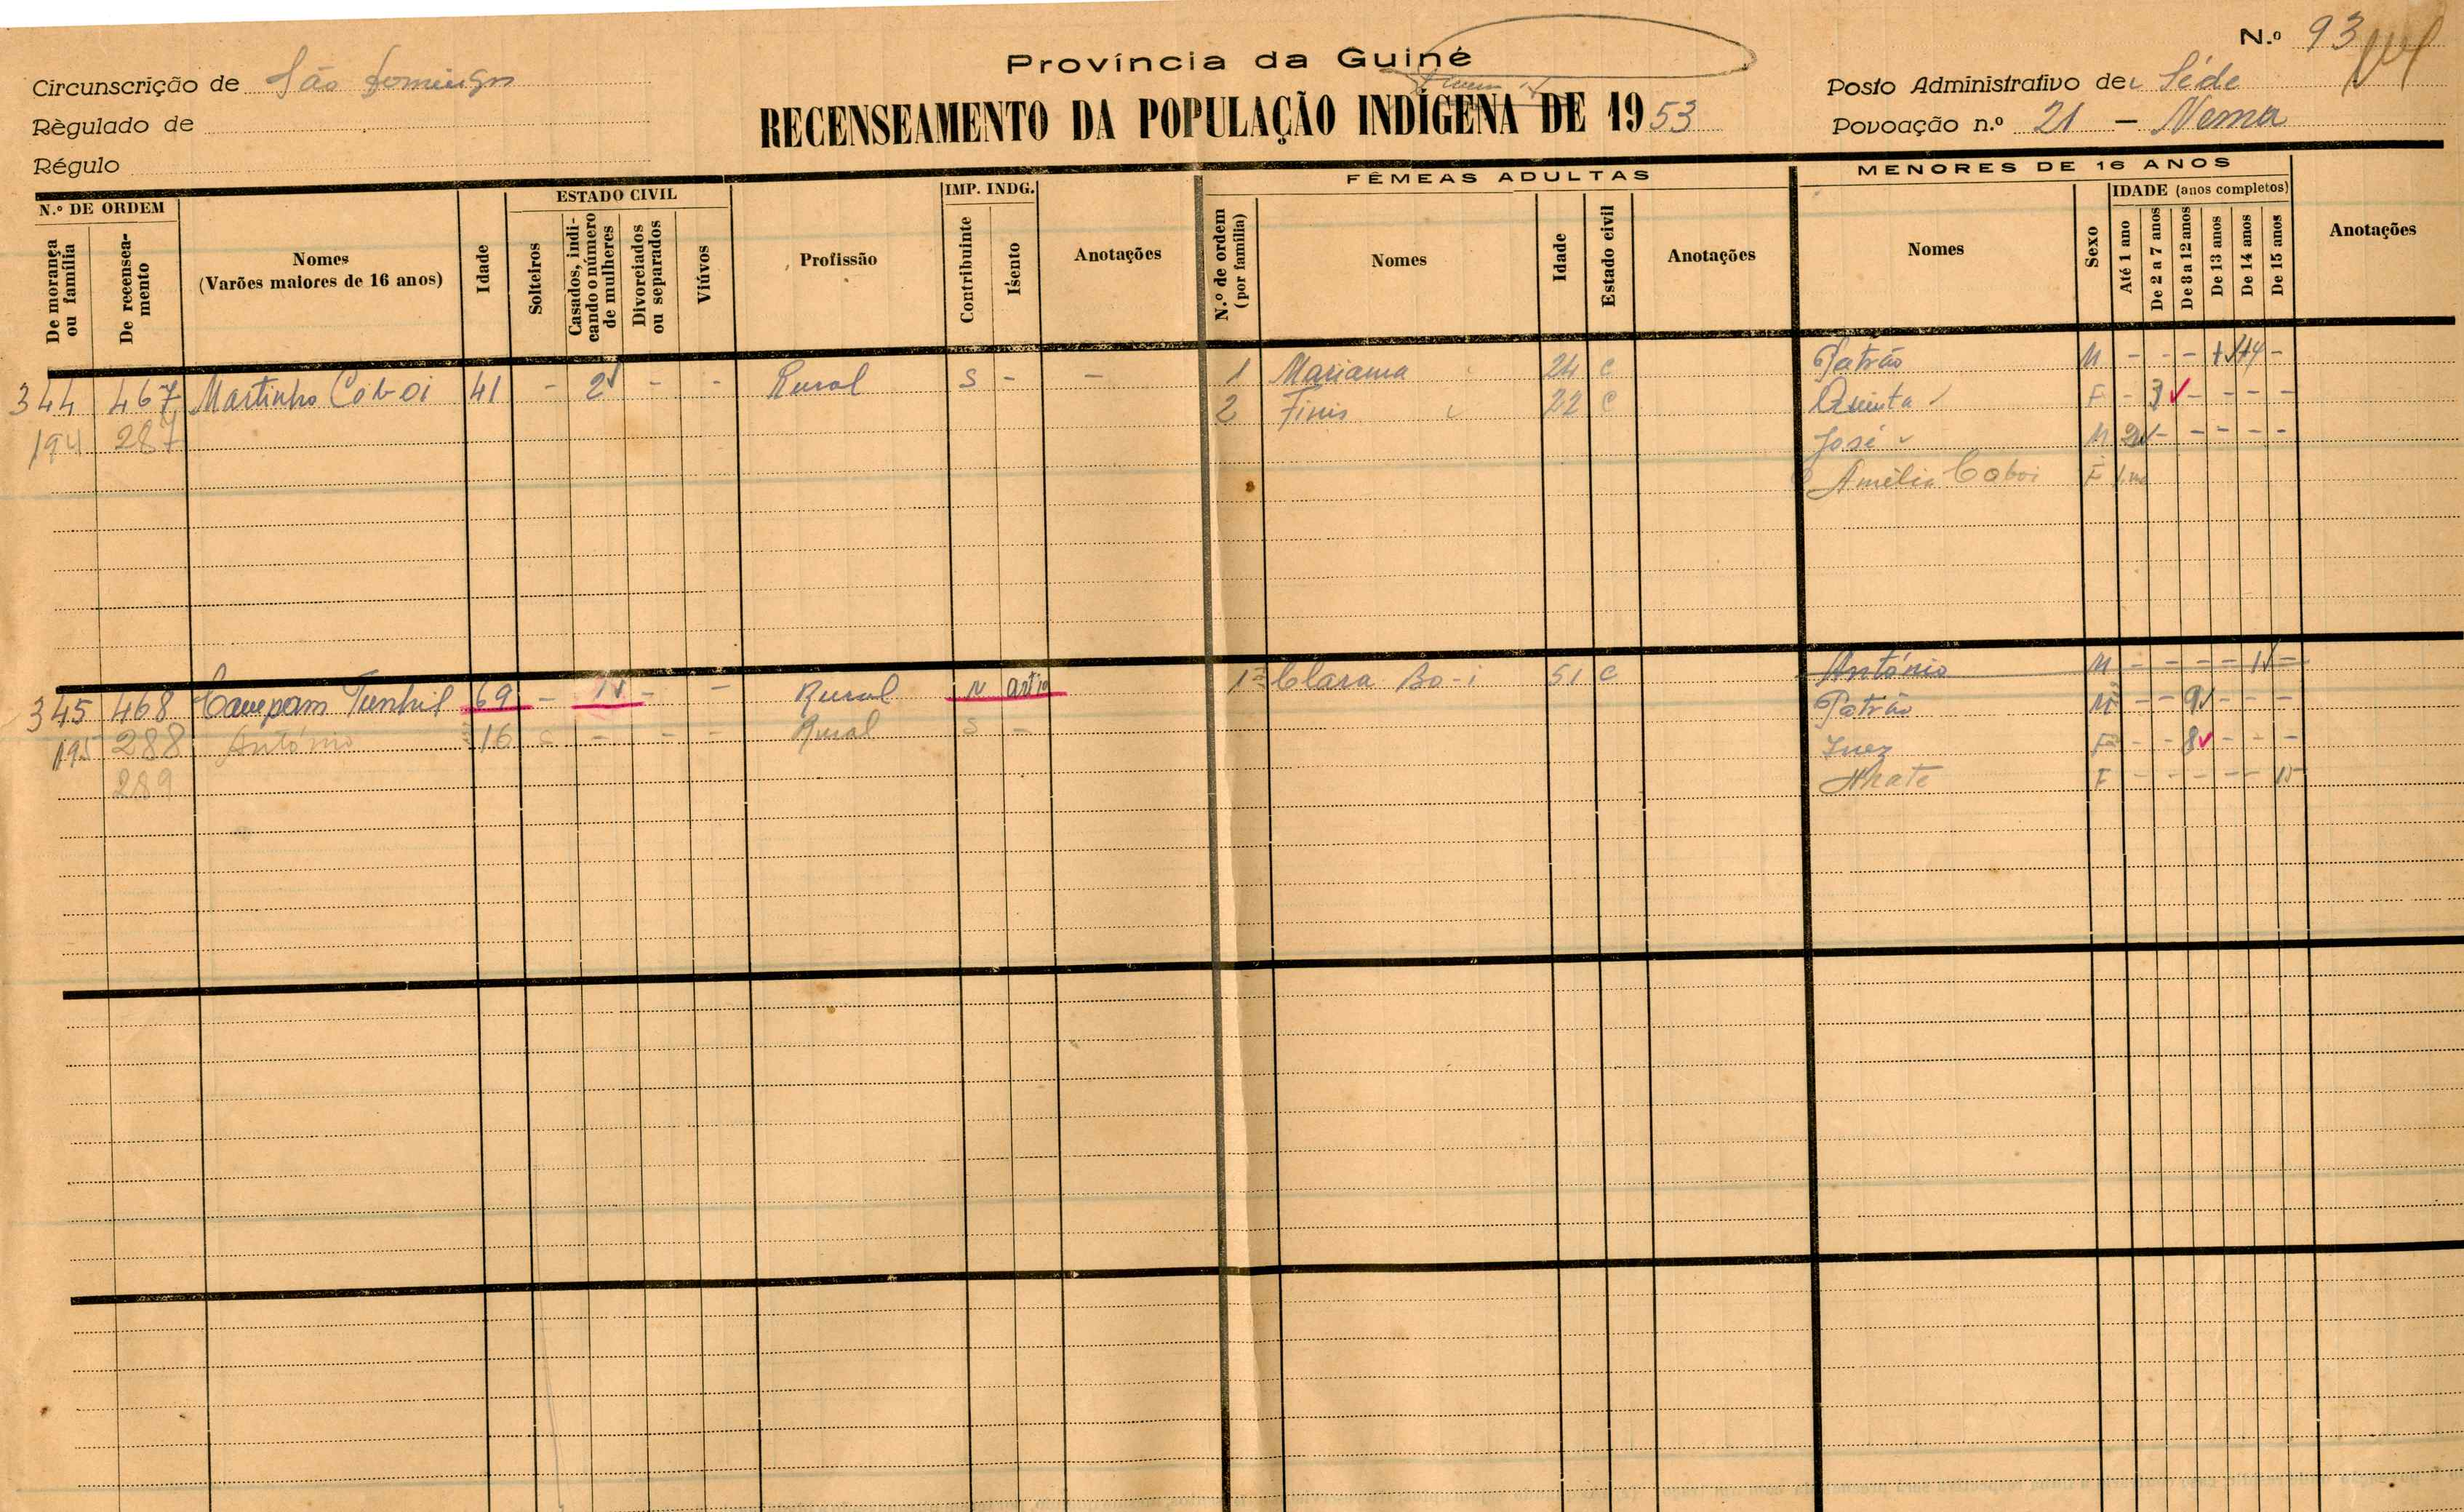 N.º 93
Província da Guiné
Circunscrição de São Domingos
Posto Administrativo de Séde
RECENSEAMENTO DA POPULAÇÃO INDÍGENA DE 1953
Règulado de
Povoação n.º 21 — Nema
Régulo
N.º DE ORDEM
De morança ou família
De recenseamento
Nomes
(Varões maiores de 16 anos)
Idade
ESTADO CIVIL
Solteiros
Casados, indicando o número de mulheres
Divorciados ou separados
Viúvos
Profissão
IMP. INDG.
Contribuinte
Isento
Anotações
FÊMEAS ADULTAS
N.º de ordem (por família)
Nomes
Idade
Estado civil
Anotações
MENORES DE 16 ANOS
Nomes
Sexo
IDADE (anos completos)
Até 1 ano
De 2 a 7 anos
De 8 a 12 anos
De 13 anos
De 14 anos
De 15 anos
Anotações
344 467 Martinho Cob-oi 41 - 2 - - Rural S - - 1 Mariama 24 C Patrão M - - - 14 -
194 287 2 Finis 22 C Quinta F - 3 - - - -
José M 2 - - - - -
Amélia Coboi F 1 m
345 468 Caupam Tunhil 69 - 1 - - Rural N 1ª Clara Bo-i 51 C António M - - - - 1 -
195 288 António 16 S - - - Rural S - Patrão M - - 9 - - -
289 Inez F - - 8 - - -
Nhate F - - - - - 15